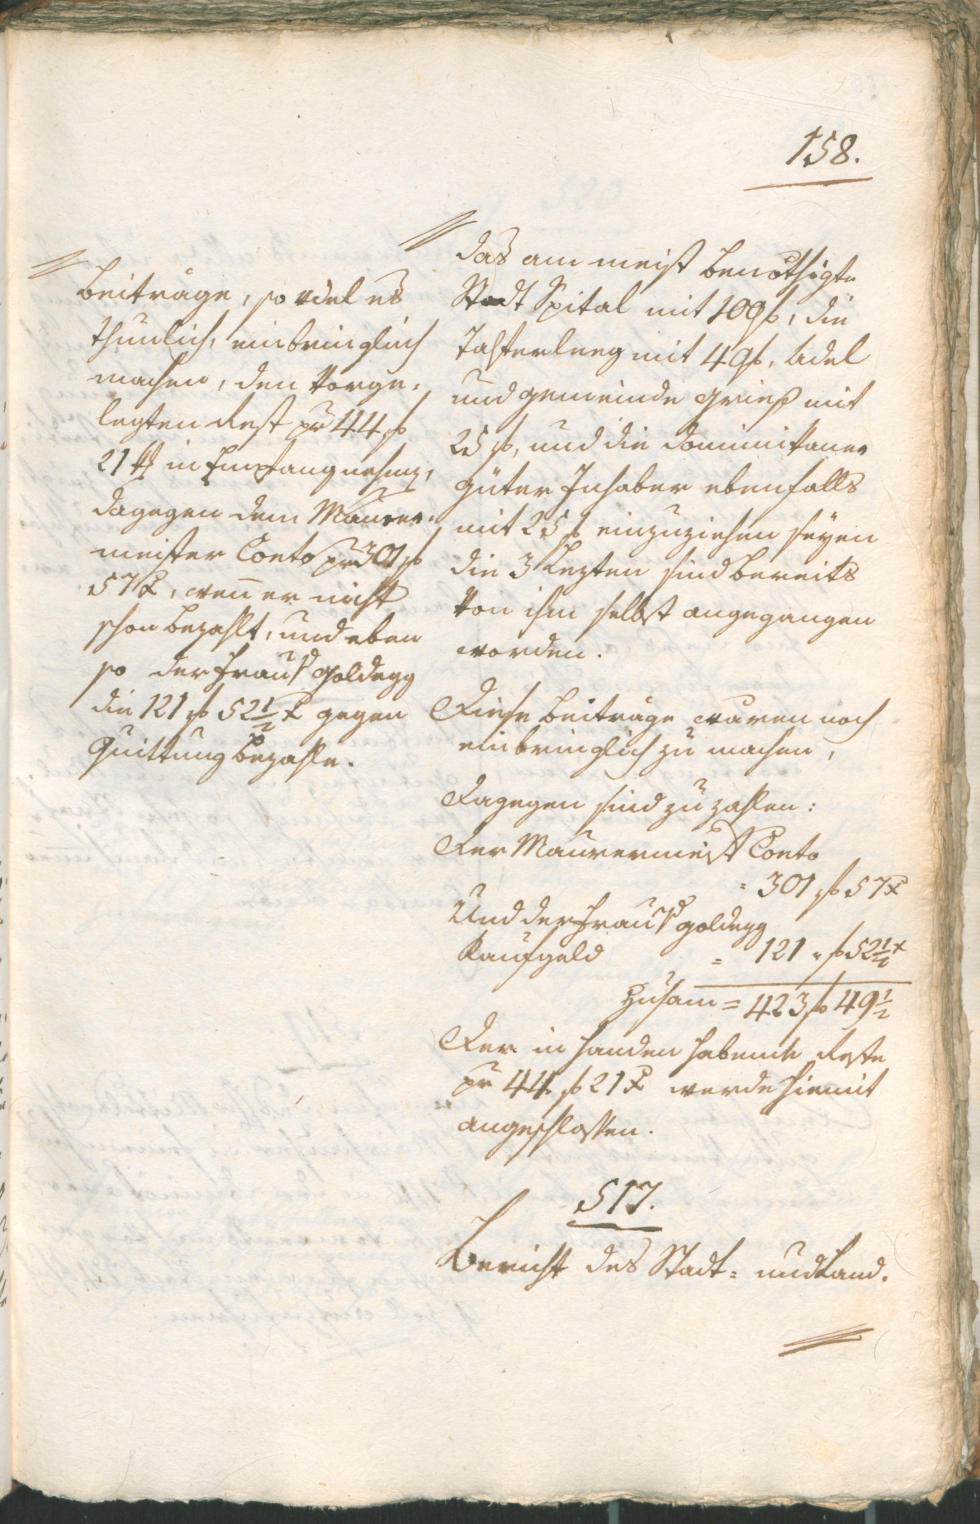 158.
Beiträge, so viel es
thunlich, einbringlich
machen, den Vorge-
legten Rest pr 44 f
21 x in Empfang nehmen,
dagegen dem Maurer-
meister Conto pr 301 f
57 x, wenn er nicht
schon bezahlt, und eben
so der Frau v Goldegg
die 121 f 52 1/2 x gegen
Quittung bezahle.
das am meist benöthigte
Stadt Spital mit 100 f, die
mit 40 f, Adel
und Gemeinde Gries mit
25 f, und die Dominikaner
güter Inhaber ebenfalls
mit 25 f einzuziehen seyen
die 3 Lezten sind bereits
von ihm selbst angegangen
worden.
Diese Beiträge wären noch
einbringlich zu machen,
Dagegen sind zu zahlen:
Der Maurermeist Conto
= 301 f 57 x
Und der Frau v Goldegg
Kaufgeld = 121 " f 52 1/2 x
Zusam = 423 f 49 1/2
Der in Handen habende Reste
pr 44 f 21 x werde hiemit
angeschlossen.
517.
Bericht des Stadt- und Land-